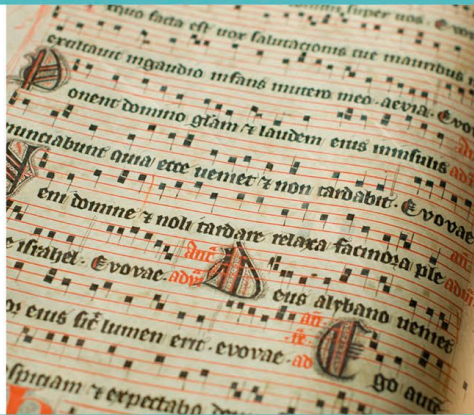 facta est uox salutacionis tue in auribus
exultauit in gaudio infans in utero meo. aevia. Evo
Ponent domino gl'am & laudem eius in insulis ad
nunciabunt quia ecce ueniet & non tardabit. Evovae
Veni domine & noli tardare relaxa facinora ple ad
e israhel. Evovae. ad an Deus a lybano ueniet
or eius sic lumen erit. evovae. ad an Ego aut
aspiciam & expectabo